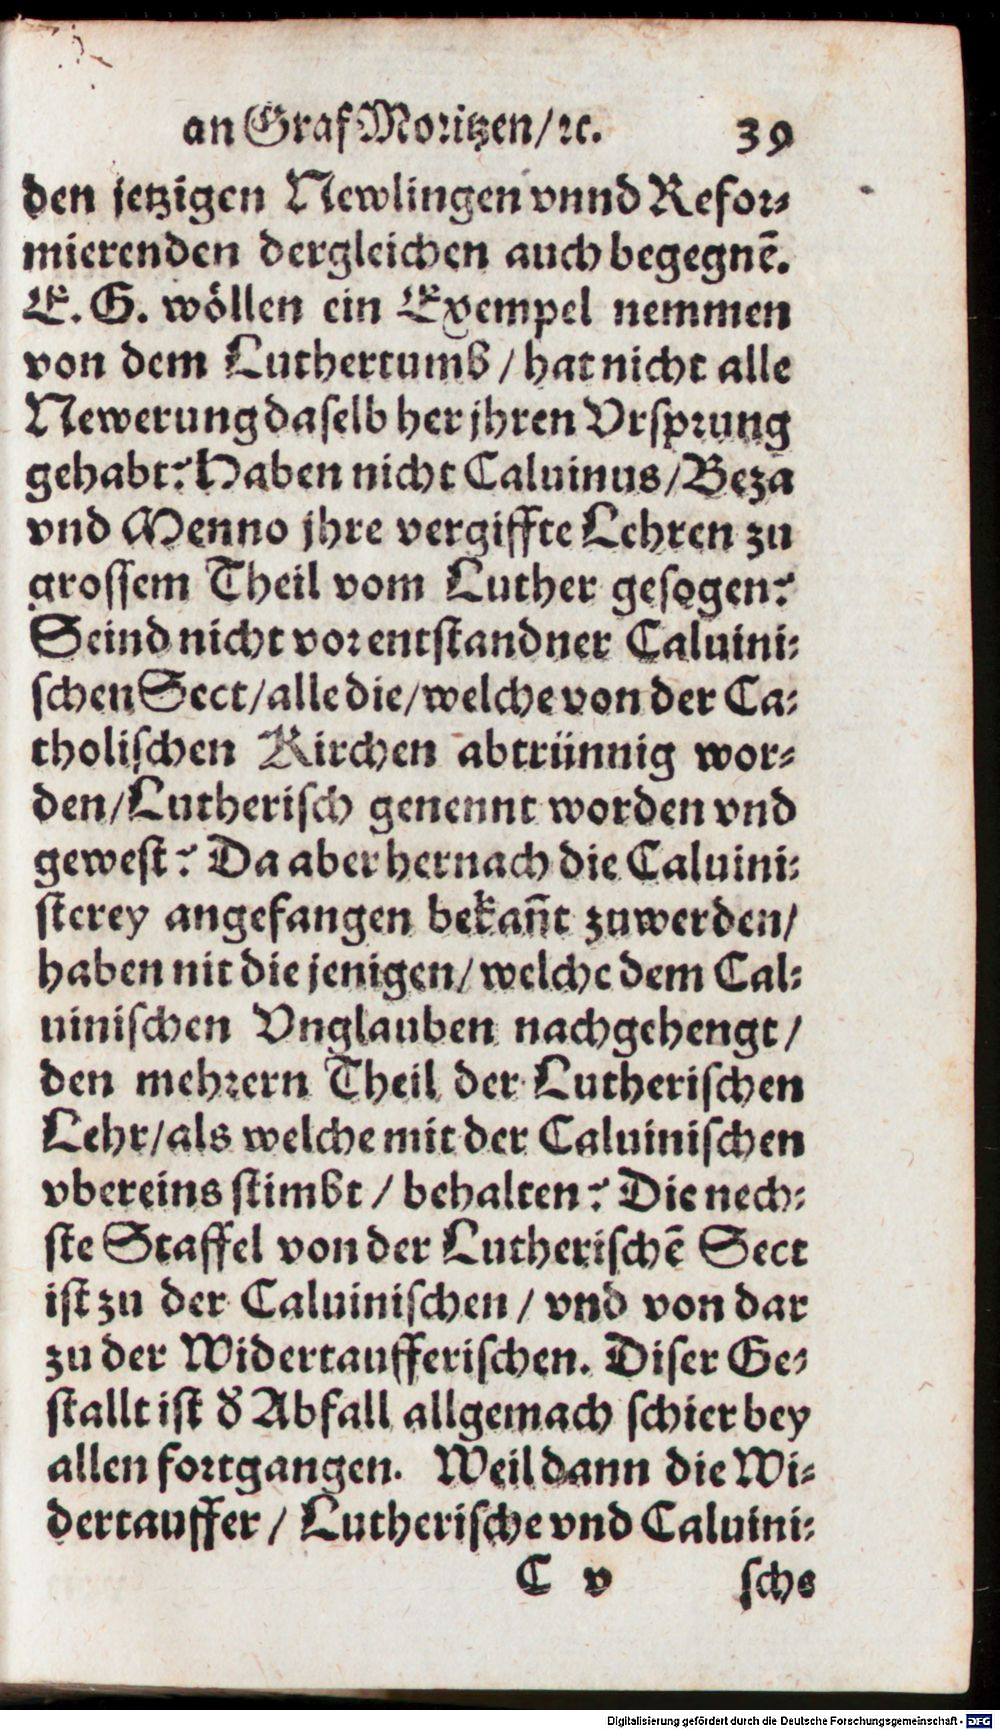 an Graf Moritzen/ ꝛc. 39
den jetzigen Newlingen vnnd Refor⸗
mierenden dergleichen auch begegnẽ.
E. G. wöllen ein Exempel nemmen
von dem Luthertumb / hat nicht alle
Newerung daselb her jhren Vrsprung
gehabt? Haben nicht Caluinus/ Beza
vnd Menno jhre vergiffte Lehren zu
grossem Theil vom Luther gesogen?
Seind nicht vor entstandner Caluini⸗
schen Sect/ alle die/ welche von der Ca⸗
tholischen Kirchen abtrünnig wor⸗
den/ Lutherisch genennt worden vnd
gewest? Da aber hernach die Caluini⸗
sterey angefangen bekañt zuwerden/
haben nit die jenigen/ welche dem Cal⸗
uinischen Vnglauben nachgehengt /
den mehrern Theil der Lutherischen
Lehr/ als welche mit der Caluinischen
vbereins stimbt / behalten? Die nech⸗
ste Staffel von der Lutherischẽ Sect
ist zu der Caluinischen / vnd von dar
zu der Widertaufferischen. Diser Ge⸗
stallt ist ð Abfall allgemach schier bey
allen fortgangen. Weil dann die Wi⸗
dertauffer / Lutherische vnd Caluini⸗
C v sche
Digitalisierung gefördert durch die Deutsche Forschungsgemeinschaft - DFG